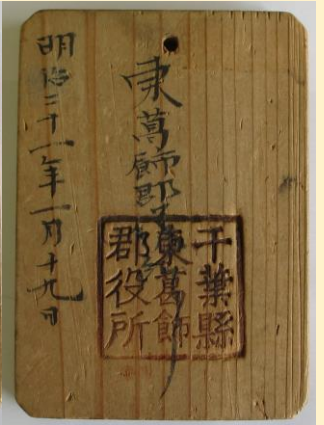 東葛飾郡
千葉縣
東葛飾
郡役所
明治二十一年一月十九日